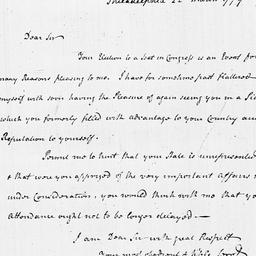 Philadelphia 22 March 1779
Dear Sir
Your Election to a Seat in Congress is an Event for
many Reasons pleasing to me. I have for sometime past flattered
myself with soon having the Pleasure of again seeing you in a
which you formerly filled with advantage to your Country and
Reputation to yourself.
Permit me to hint that your State is unrepresented
& that were you apprized of the very important affairs
under Consideration, you would think with me that
Attendance ought not to be longer delayed —
I am Dear Sir with great Respect
Your most obedient & Servt